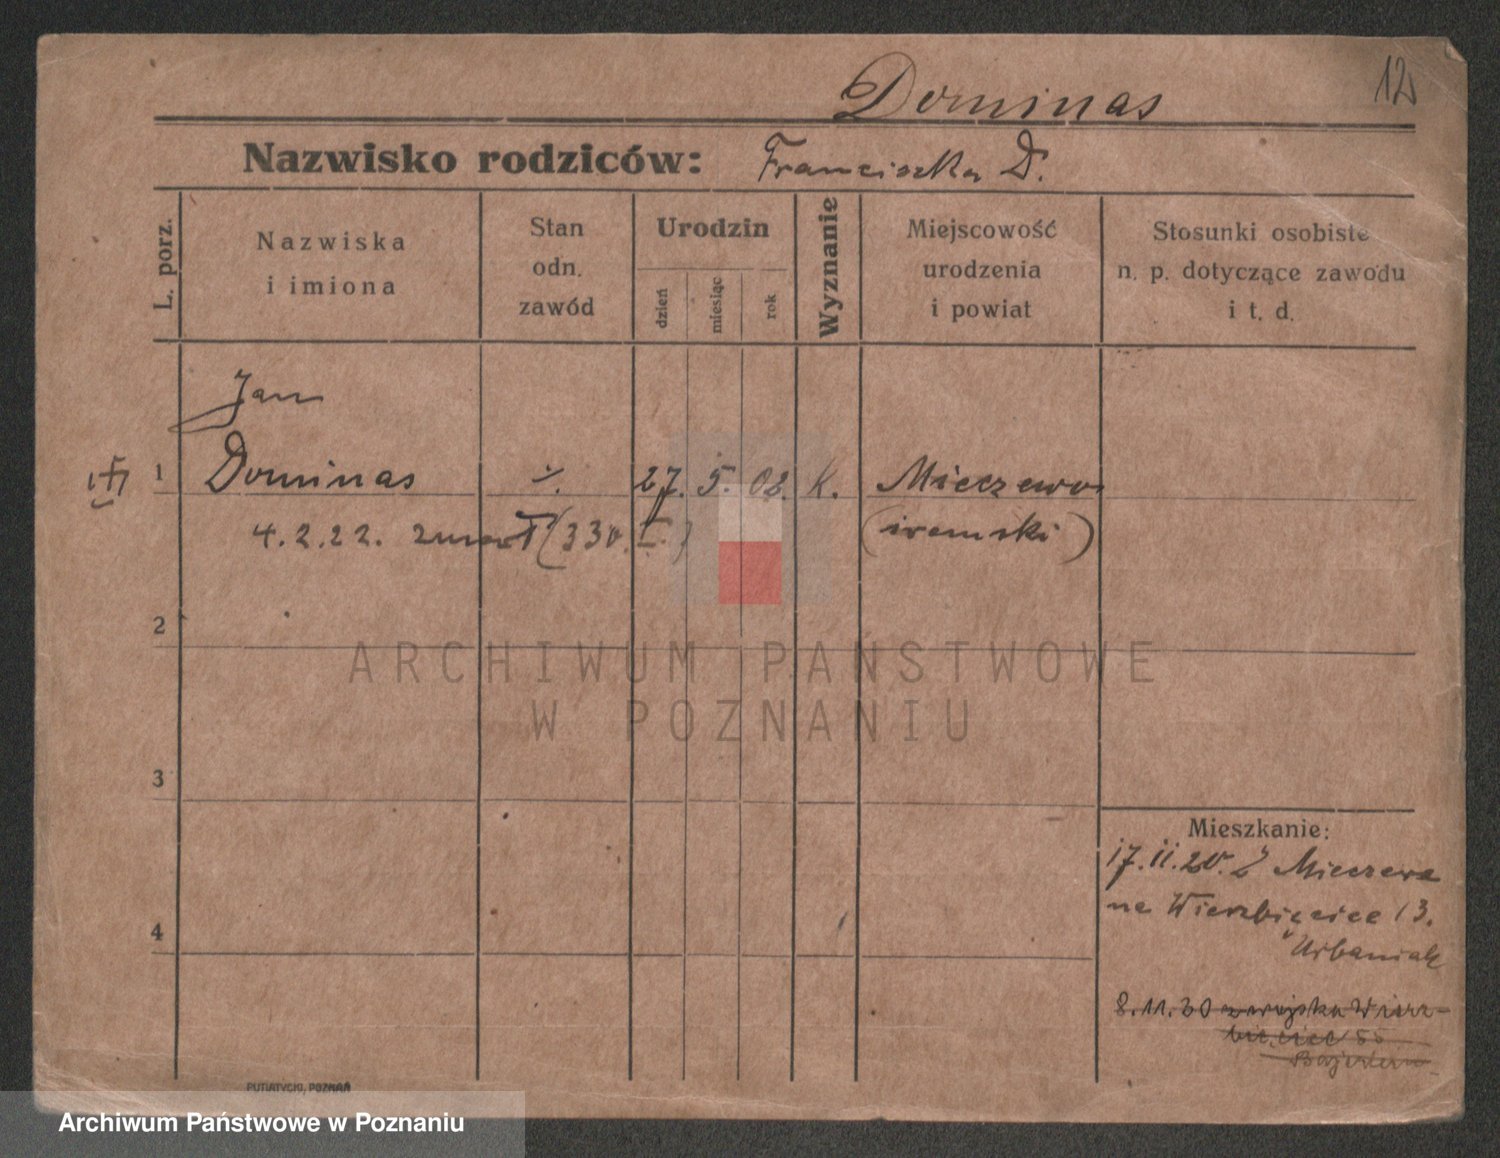 12
Dominas
Nazwisko rodziców: Franciszka D.
L. porz.
Nazwiska
i imiona
Stan
odn.
zawód
Urodzin
dzień
miesiąc
rok
Wyznanie
Miejscowość
urodzenia
i powiat
Stosunki osobiste
n. p. dotyczące zawodu
i t. d.
Jan
1 Dominas 27. 5. 02. k. Mieczewo
4.2.22. zmarł (330. I.) (śremski)
2
ARCHIWUM PAŃSTWOWE
W POZNANIU
3
Mieszkanie:
17.11.20. z Mieczewa
na Wierzbięcice 13.
Urbaniak
4
8.11.20 z wojska Wierz-
bięcice
PUTIATYCKI, POZNAŃ
Archiwum Państwowe w Poznaniu